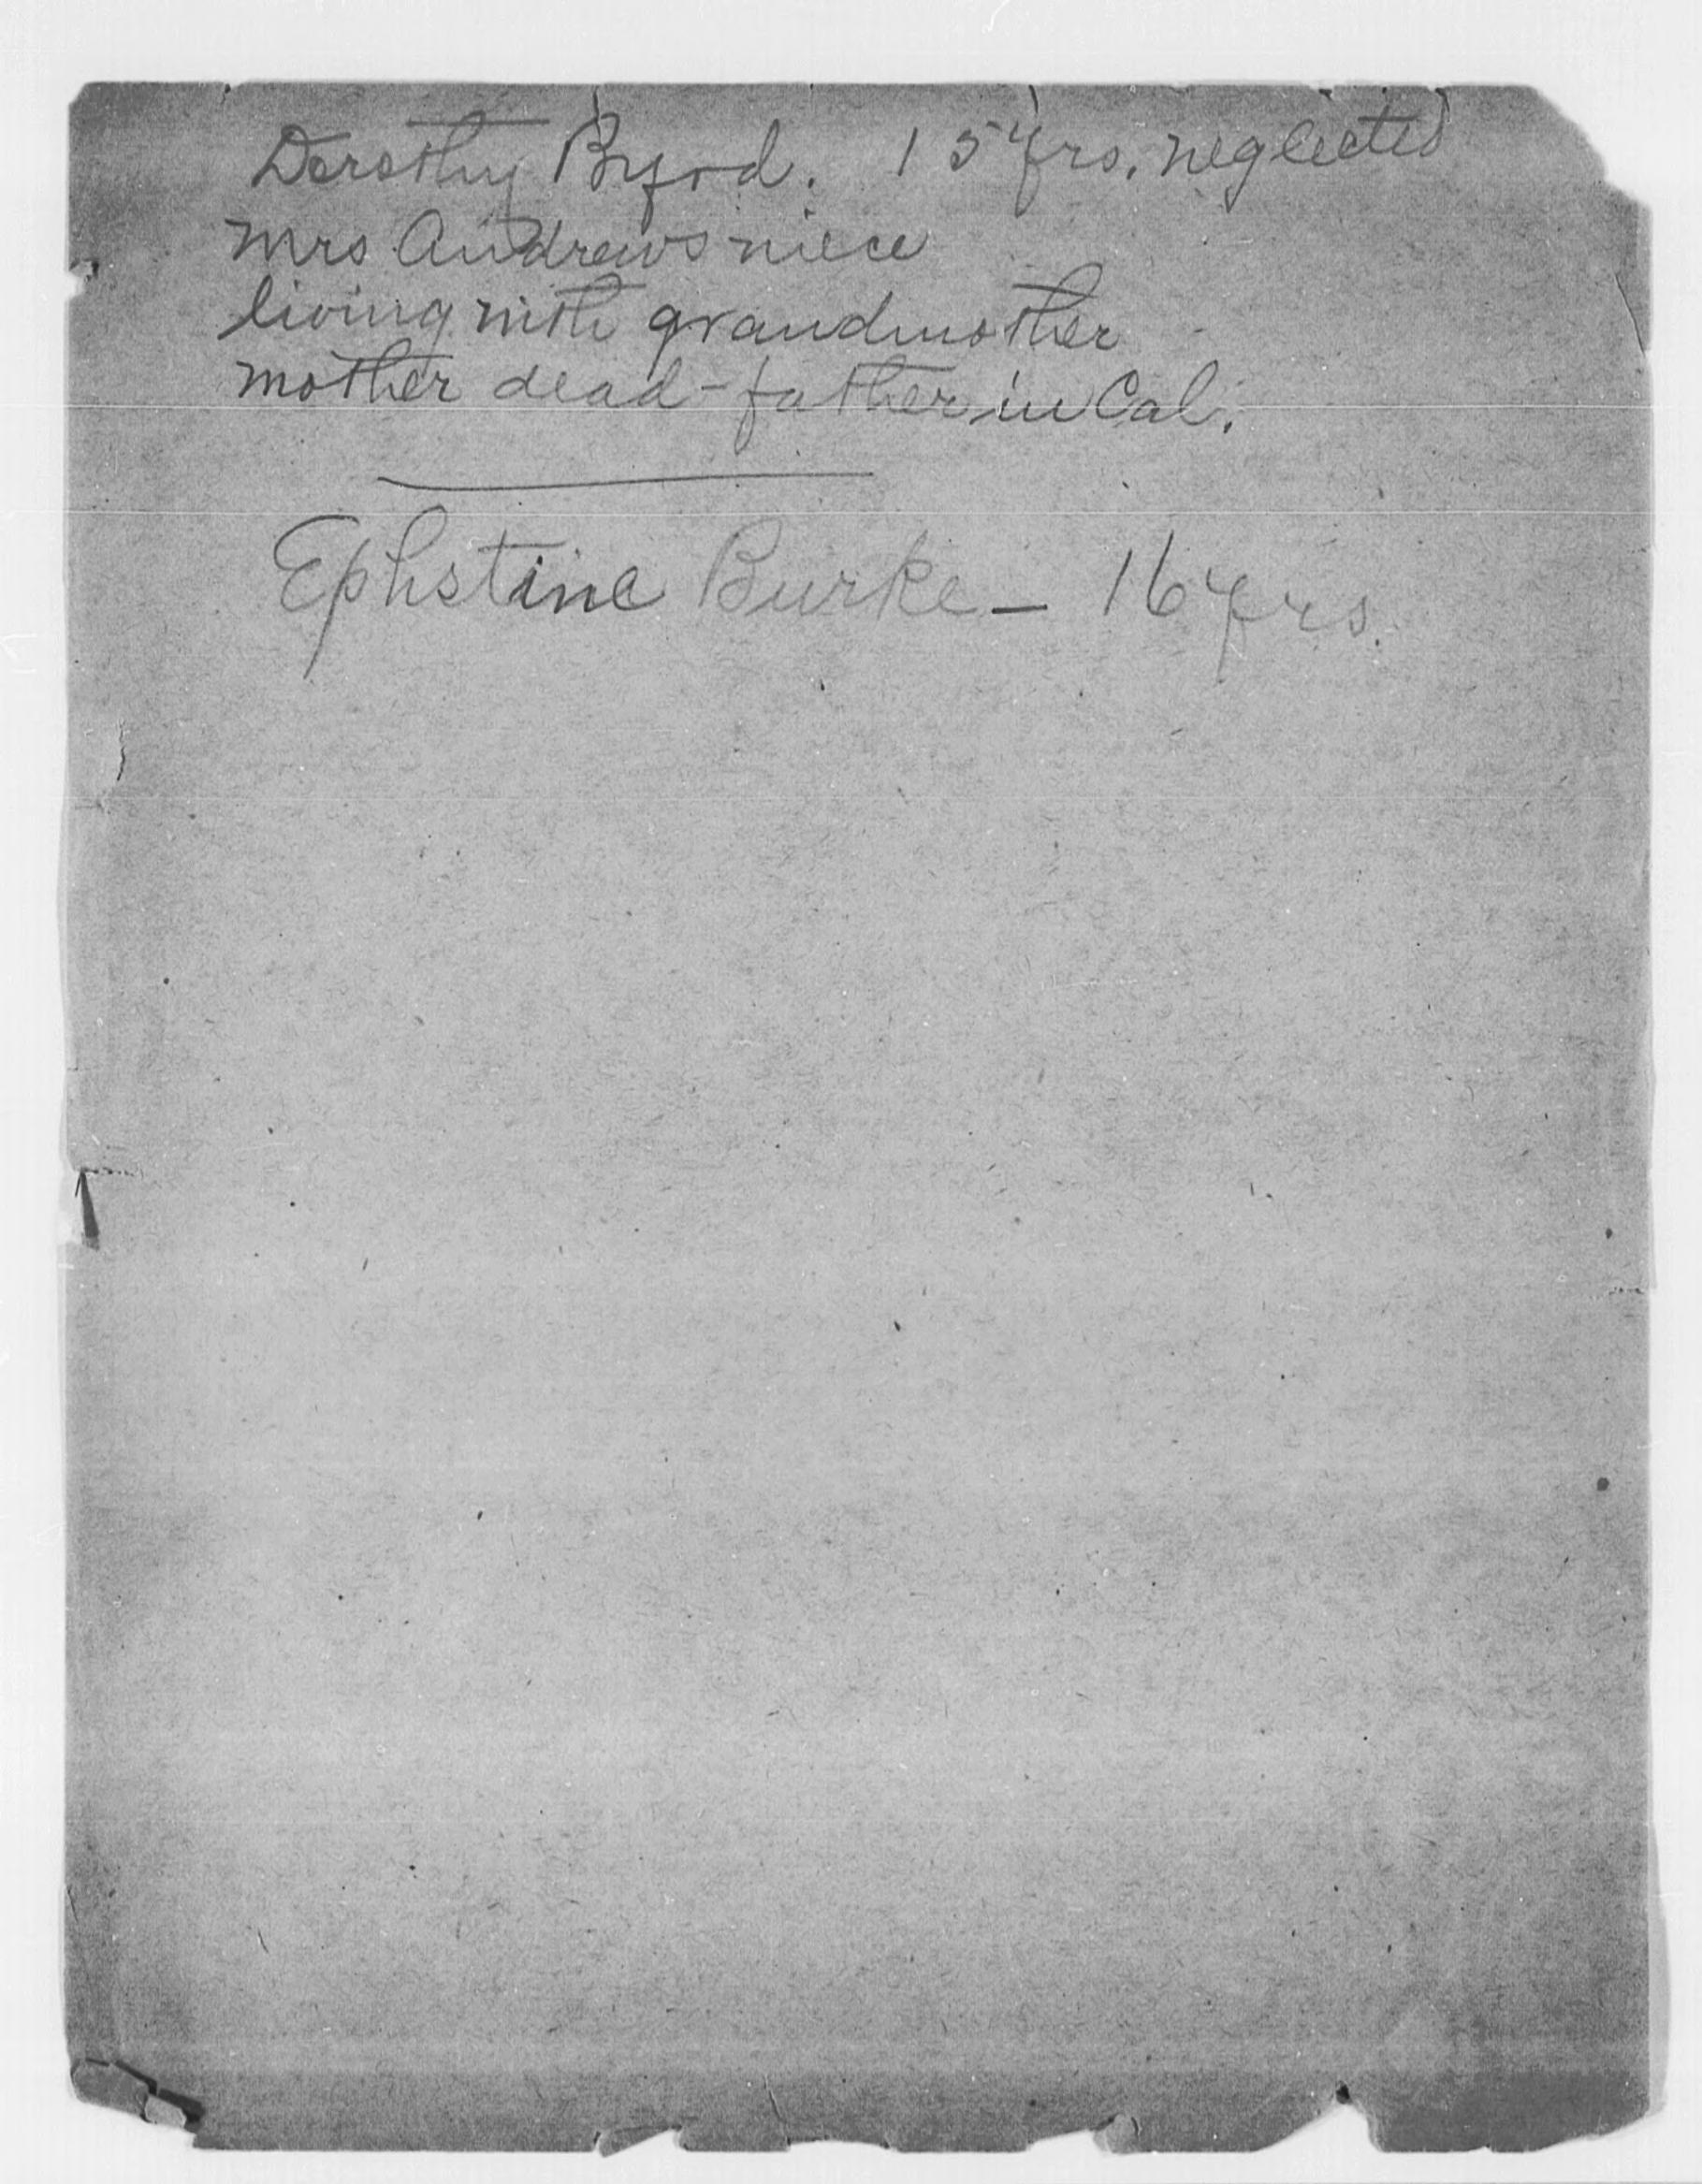 Dorothy Byrod. 15 yrs. neglected
Mrs Andrews niece
living with grandmother
mother dead - father in Cal.
Ephstine Burke — 16 yrs.